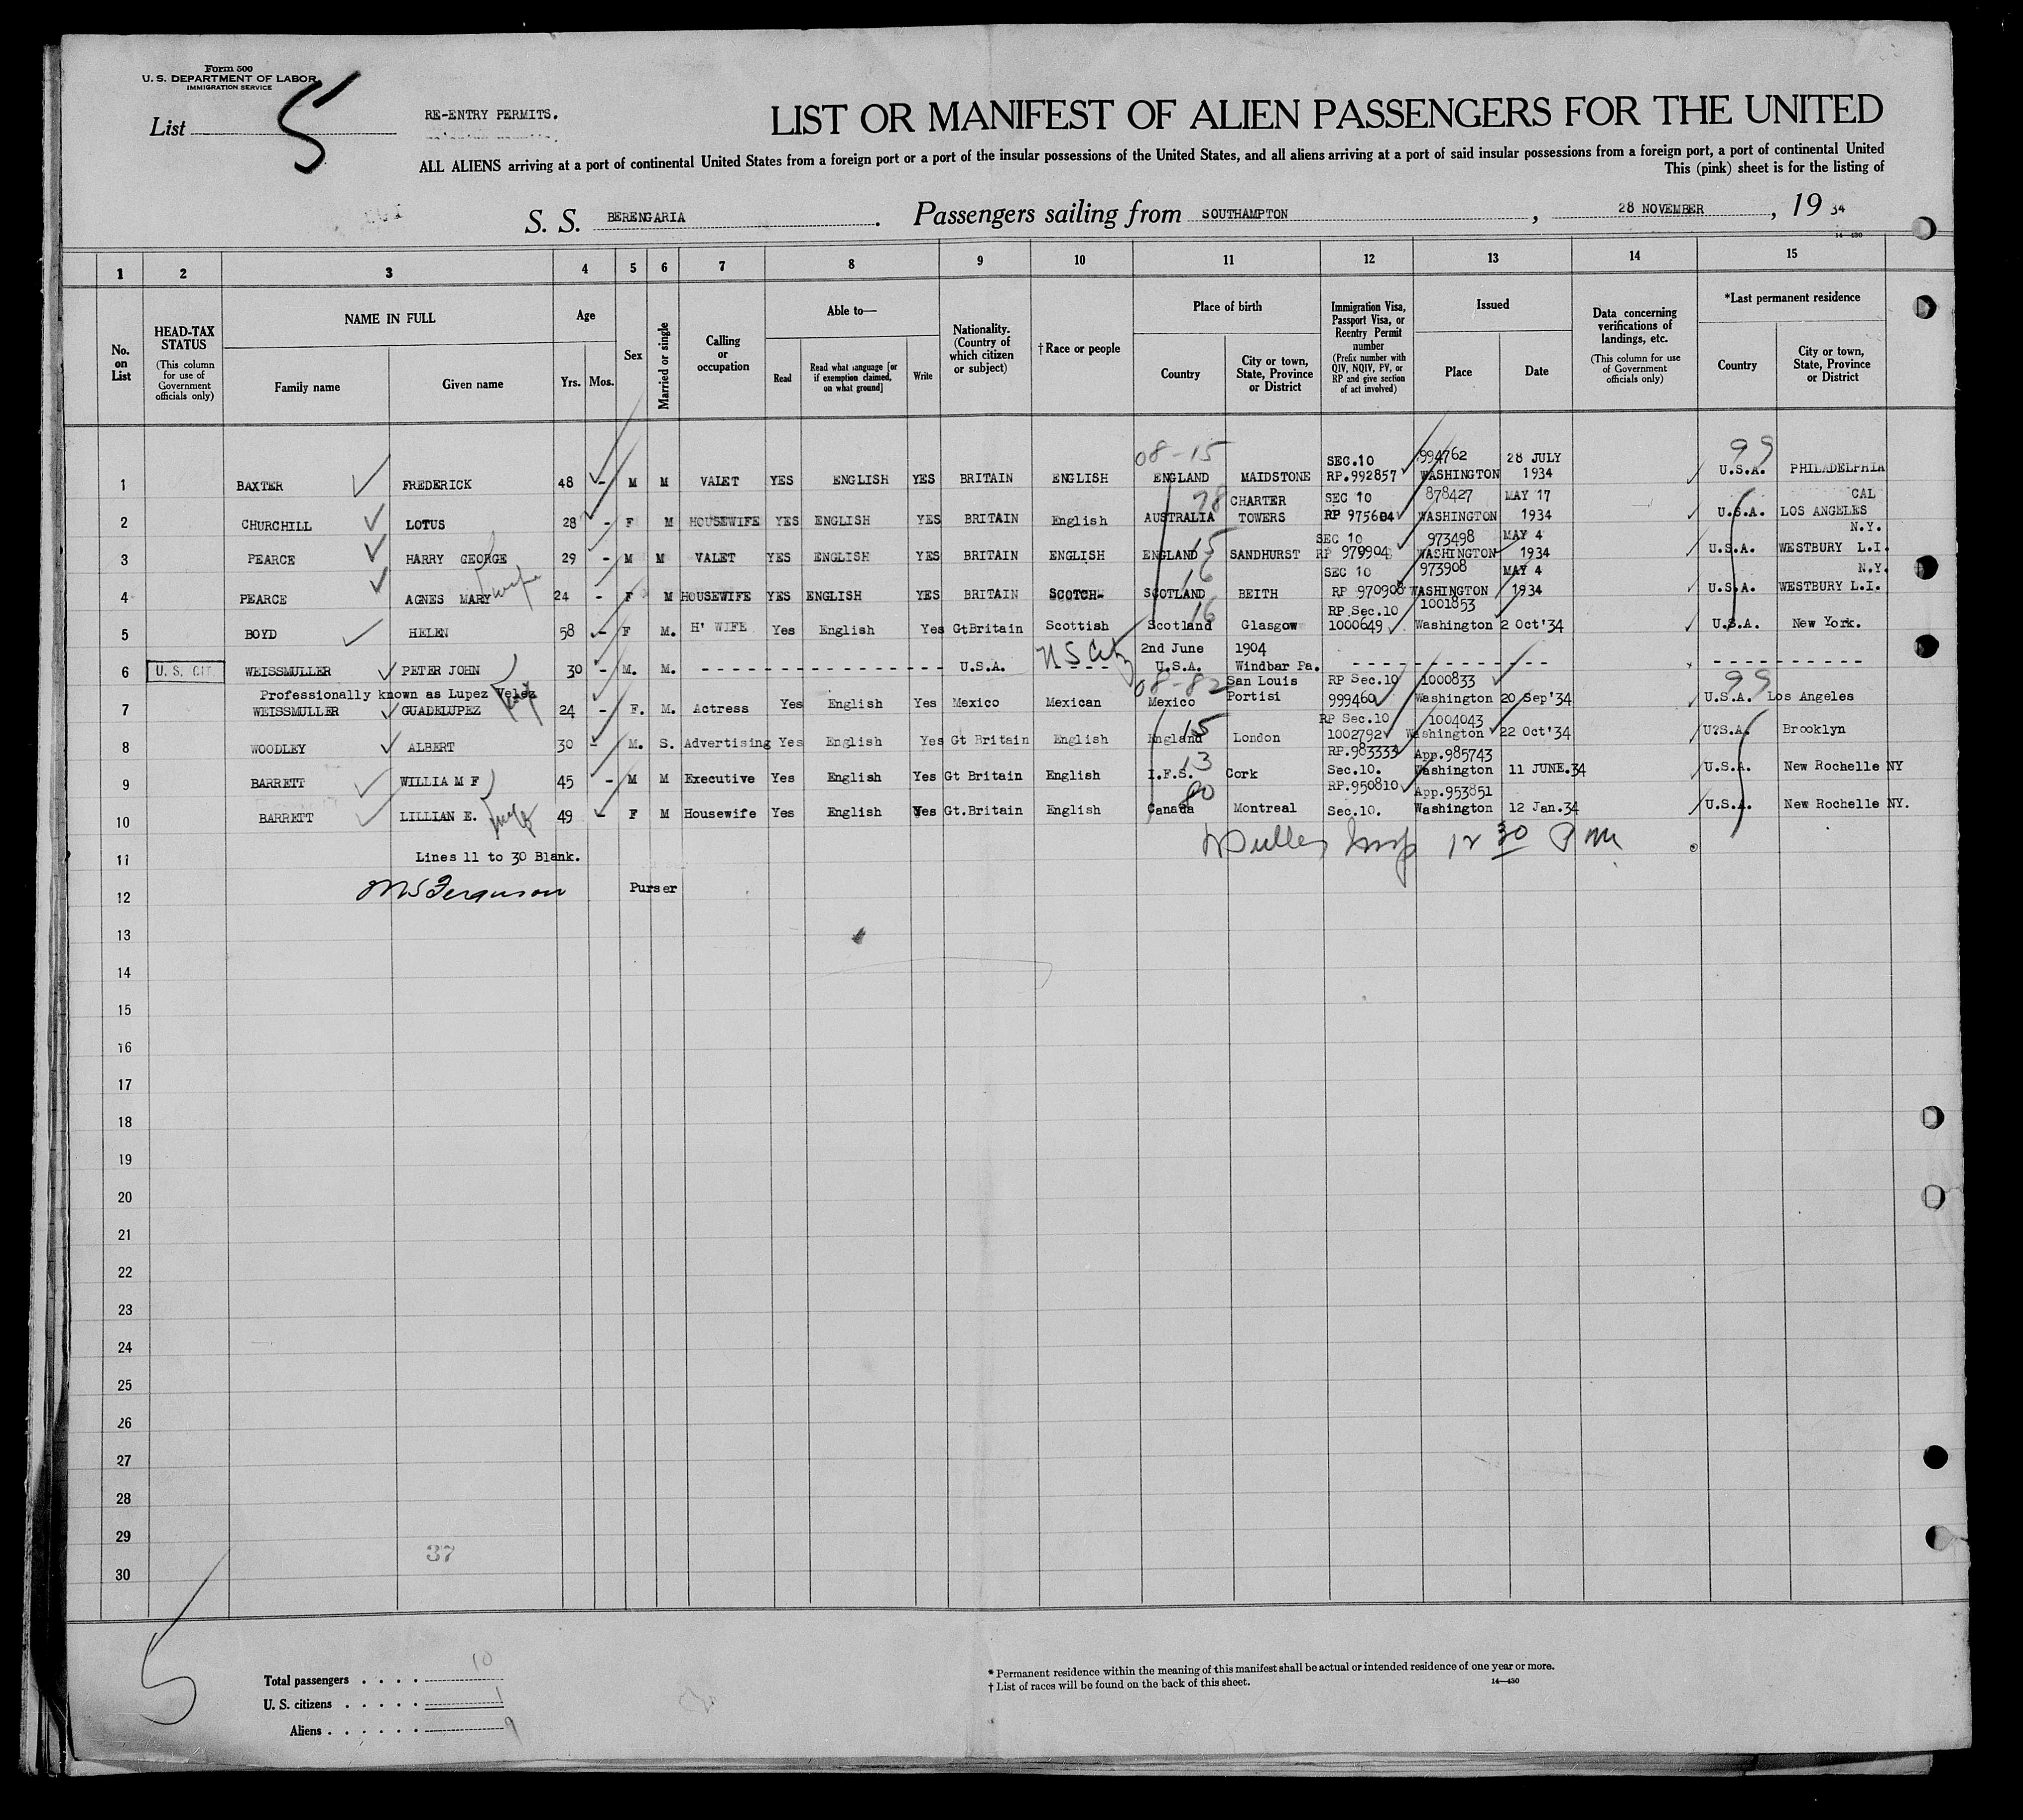 Form 500
U. S. DEPARTMENT OF LABOR
IMMIGRATION SERVICE
List 5
RE-ENTRY PERMITS.
LIST OR MANIFEST OF ALIEN PASSENGERS FOR THE UNITED
ALL ALIENS arriving at a port of continental United States from a foreign port or a port of the insular possessions of the United States, and all aliens arriving at a port of said insular possessions from a foreign port, a port of continental United
This (pink) sheet is for the listing of
S. S. BERENGARIA. Passengers sailing from SOUTHAMPTON, 28 NOVEMBER, 19 34
14—430
1 2 3 4 5 6 7 8 9 10 11 12 13 14 15
No. on List
HEAD-TAX STATUS (This column for use of Government officials only)
NAME IN FULL Family name Given name
Age Yrs. Mos.
Sex
Married or single
Calling or occupation
Able to— Read Read what language [or if exemption claimed, on what ground] Write
Nationality. (Country of which citizen or subject)
†Race or people
Place of birth Country City or town, State, Province or District
Immigration Visa, Passport Visa, or Reentry Permit number (Prefix number with QIV, NQIV, PV, or RP and give section of act involved)
Issued Place Date
Data concerning verifications of landings, etc. (This column for use of Government officials only)
*Last permanent residence Country City or town, State, Province or District
08-15 SEC.10 994762 28 JULY 99
1 BAXTER FREDERICK 48 - M M VALET YES ENGLISH YES BRITAIN ENGLISH ENGLAND MAIDSTONE RP.992857 WASHINGTON 1934 U.S.A. PHILADELPHIA
78 CHARTER SEC 10 878427 MAY 17 CAL
2 CHURCHILL LOTUS 28 - F M HOUSEWIFE YES ENGLISH YES BRITAIN English AUSTRALIA TOWERS RP 975604 WASHINGTON 1934 U.S.A. LOS ANGELES
15 SEC 10 973498 MAY 4 N.Y.
3 PEARCE HARRY GEORGE 29 - M M VALET YES ENGLISH YES BRITAIN ENGLISH ENGLAND SANDHURST RP 970904 WASHINGTON 1934 U.S.A. WESTBURY L.I.
16 SEC 10 973908 MAY 4 N.Y.
4 PEARCE AGNES MARY wife 24 - F M HOUSEWIFE YES ENGLISH YES BRITAIN SCOTCH- SCOTLAND BEITH RP 970908 WASHINGTON 1934 U.S.A. WESTBURY L.I.
16 RP Sec.10 1001853
5 BOYD HELEN 58 - F M. H' WIFE Yes English Yes GtBritain Scottish Scotland Glasgow 1000649 Washington 2 Oct'34 U.S.A. New York.
U S City 2nd June 1904
6 U. S. CIT WEISSMULLER PETER JOHN 30 - M. M. U.S.A. U.S.A. Windbar Pa.
Professionally known as Lupez Velez 08-82 San Louis RP Sec.10 1000833 99
7 WEISSMULLER GUADELUPEZ 24 - F. M. Actress Yes English Yes Mexico Mexican Mexico Portisi 999460 Washington 20 Sep'34 U.S.A. Los Angeles
15 RP Sec.10 1004043
8 WOODLEY ALBERT 30 - M. S. Advertising Yes English Yes Gt Britain English England London 1002792 Washington 22 Oct'34 U?S.A. Brooklyn
13 RP.983333 App.985743
9 BARRETT WILLIAM F 45 - M M Executive Yes English Yes Gt Britain English I.F.S. Cork Sec.10. Washington 11 JUNE.34 U.S.A. New Rochelle NY
80 RP.950810 App.953851
10 BARRETT LILLIAN E. wife 49 F M Housewife Yes English Yes Gt.Britain English Canada Montreal Sec.10. Washington 12 Jan.34 U.S.A. New Rochelle NY.
Insp 12 30 P M
11 Lines 11 to 30 Blank.
12 M S Ferguson Purser
13
14
15
16
17
18
19
20
21
22
23
24
25
26
27
28
29
37
30
5
Total passengers . . . . 10
U. S. citizens . . . . . 1
Aliens . . . . . . 9
* Permanent residence within the meaning of this manifest shall be actual or intended residence of one year or more.
† List of races will be found on the back of this sheet.
14—430